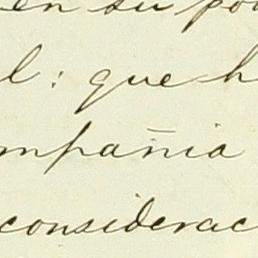 en su po
l: que h
mpañia
considerac